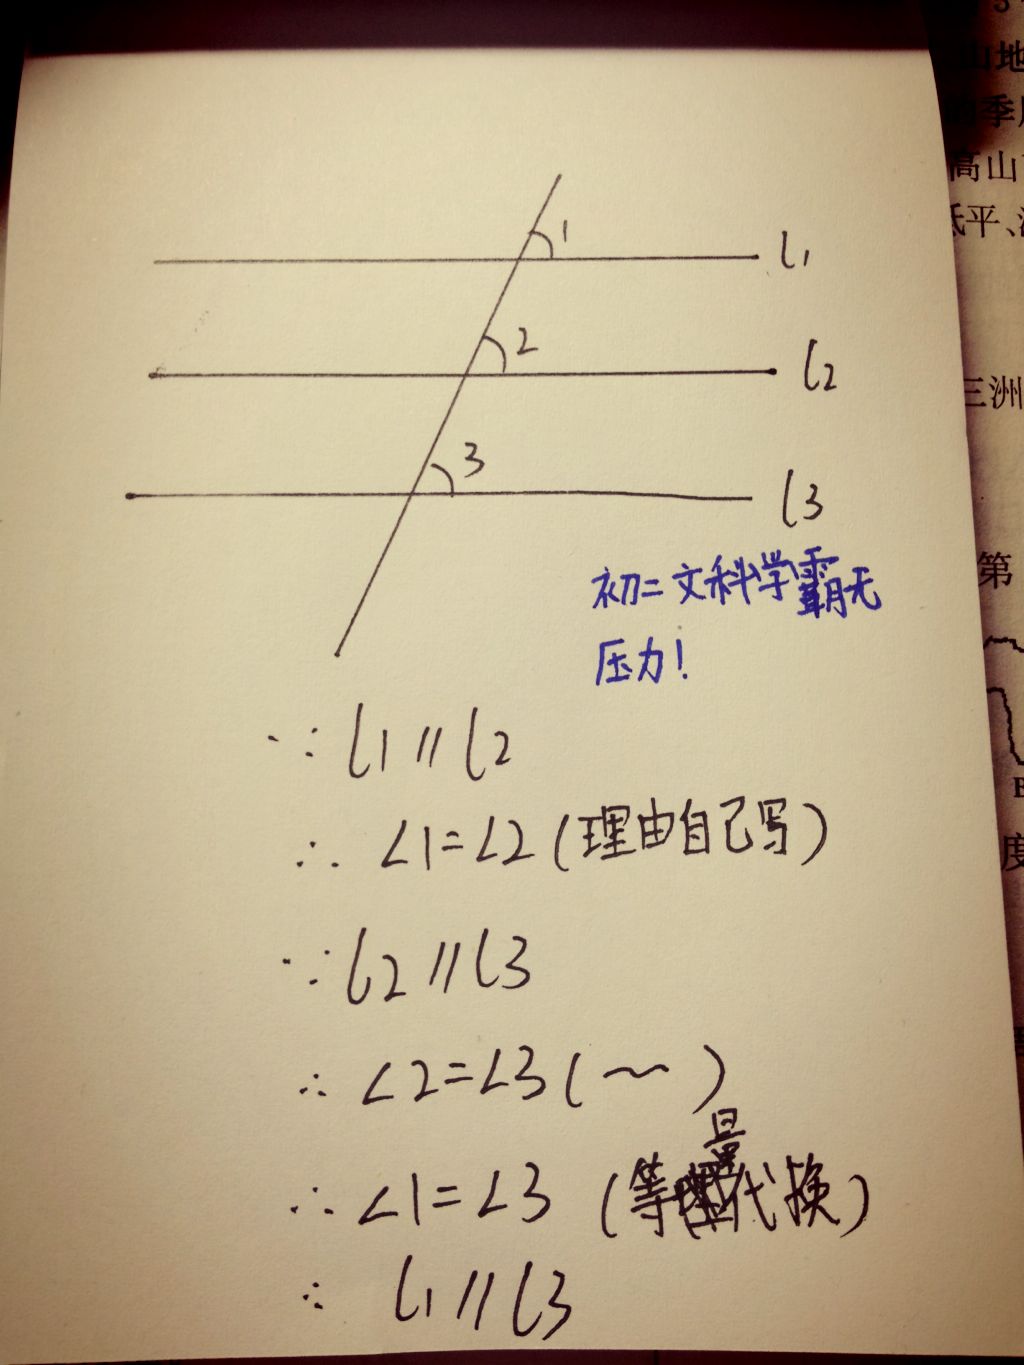 1
l1
2
l2
3
l3
初二文科学霸无
压力!
∵ l1 // l2
∴ ∠1=∠2(理由自己写)
∵ l2 // l3
∴ ∠2=∠3(～)
量
∴ ∠1=∠3 (等代换)
∴ l1 // l3
山地
季
高山
低平、
三洲
第
度